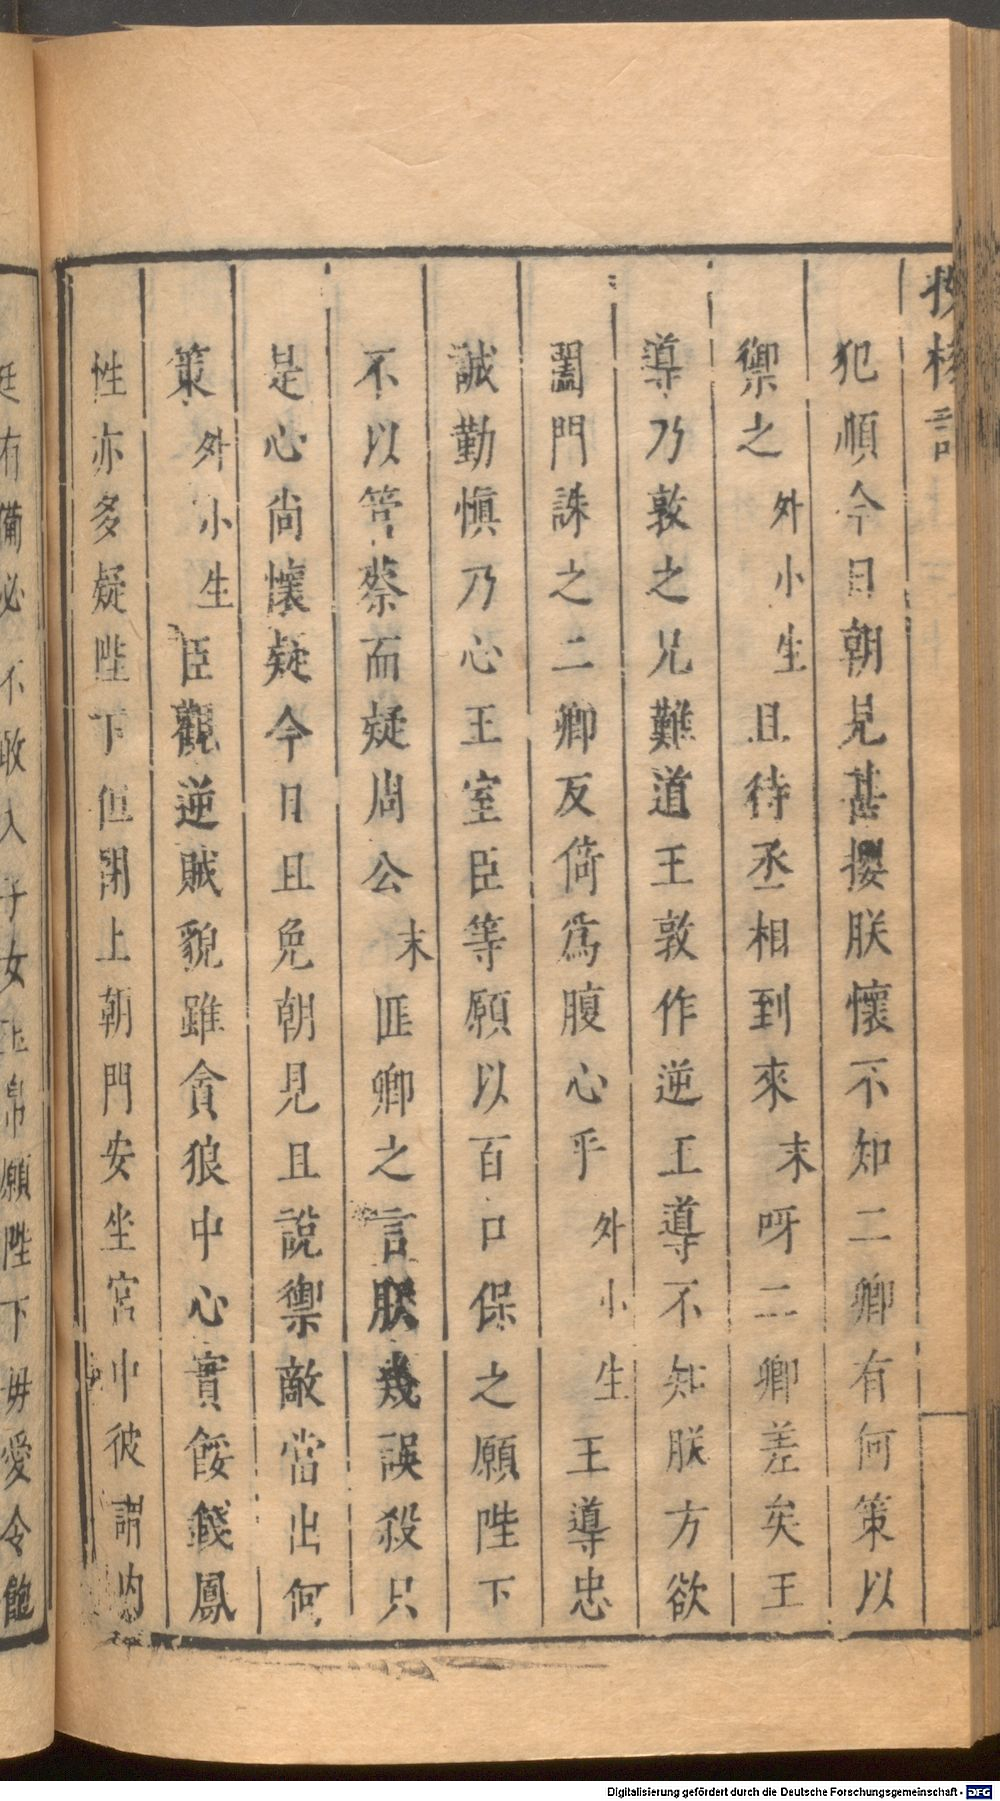 投梭記
犯順今日朝見甚擾朕懷不知二卿有何策以
禦之外小生且待丞相到來末呀二卿差矣王
導乃敦之兄難道王敦作逆王導不知朕方欲
闔門誅之二卿反倚爲腹心乎外小生王導忠
誠勤慎乃心王室臣等願以百口保之願陛下
不以管蔡而疑周公末匪卿之言朕幾誤殺只
是心尚懷疑今日且免朝見且說禦敵當出何
策外小生臣觀逆賊貌雖貪狼中心實餒錢鳳
性亦多疑陛下但閉上朝門安坐宮中彼謂內
廷有備必不敢入子女玉帛願陛下毋愛令飽
Digitalisierung gefördert durch die Deutsche Forschungsgemeinschaft - DFG